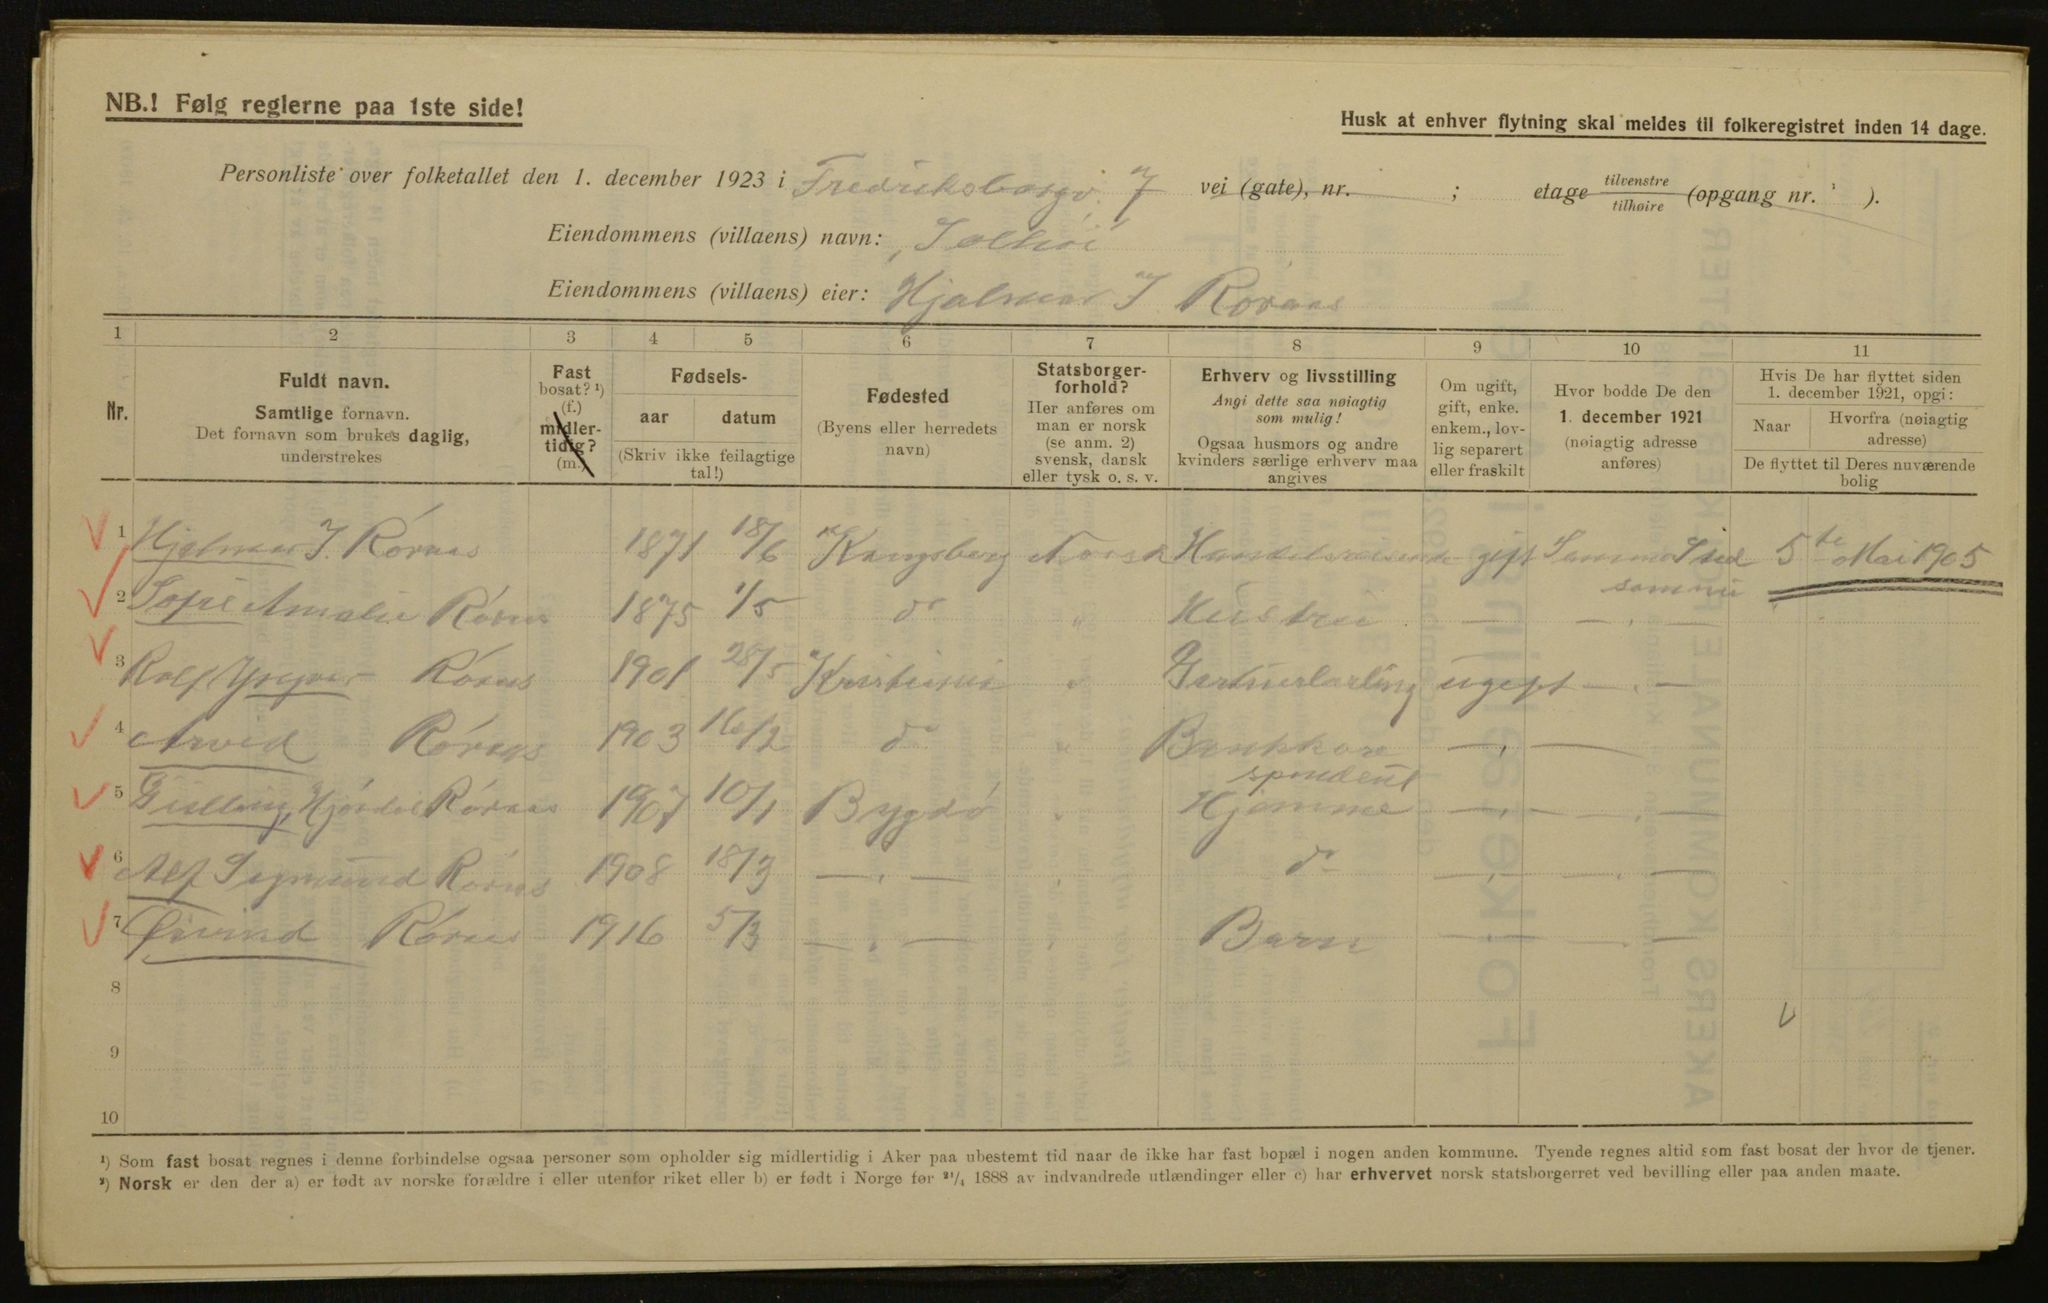 NB.! Følg reglerne paa 1ste side!
Husk at enhver flytning skal meldes til folkeregistret inden 14 dage.
Personliste over folketallet den 1. december 1923 i Fredriksborgv. 7 vei (gate), nr. ; etage tilvenstre tilhøire (opgang nr. ).
Eiendommens (villaens) navn: Solhøi
Eiendommens (villaens) eier: Hjalmar J Røraas
1 2 3 4 5 6 7 8 9 10 11
Nr.
Fuldt navn.
Samtlige fornavn.
Det fornavn som brukes daglig,
understrekes
Fast
bosat? ¹)
(f.)
midler-
tidig?
(m.)
Fødsels-
aar datum
(Skriv ikke feilagtige
tal!)
Fødested
(Byens eller herredets
navn)
Statsborger-
forhold?
Her anføres om
man er norsk
(se anm. 2)
svensk, dansk
eller tysk o. s. v.
Erhverv og livsstilling
Angi dette saa nøiagtig
som mulig!
Ogsaa husmors og andre
kvinders særlige erhverv maa
angives
Om ugift,
gift, enke.
enkem., lov-
lig separert
eller fraskilt
Hvor bodde De den
1. december 1921
(nøiagtig adresse
anføres)
Hvis De har flyttet siden
1. december 1921, opgi:
Naar Hvorfra (nøiagtig
adresse)
De flyttet til Deres nuværende
bolig
1 Hjalmar J. Røraas 1871 18/6 Kongsberg Norsk Handelsreisende gift Samme Sted 5te Mai 1905
samme
2 Sofie Amalie Røraas 1875 1/5 do " Hustru — — " —
3 Rolf Yngvar Røraas 1901 28/5 Kristiania " Gartnerlærling ugift — " —
4 Arvid Røraas 1903 16/2 do Bankkore
spondent — " —
5 Gullaug Hjørdis Røraas 1907 10/1 Bygdø " Hjemme — " — — " —
6 Alf Sigmund Røraas 1908 18/3 — " — " do — " — — " —
7 Øivind Røraas 1916 5/3 — " — Barn — " — — " —
8
9
10
¹) Som fast bosat regnes i denne forbindelse ogsaa personer som opholder sig midlertidig i Aker paa ubestemt tid naar de ikke har fast bopæl i nogen anden kommune. Tyende regnes altid som fast bosat der hvor de tjener.
²) Norsk er den der a) er født av norske forældre i eller utenfor riket eller b) er født i Norge før ²¹/₄ 1888 av indvandrede utlændinger eller c) har erhvervet norsk statsborgerret ved bevilling eller paa anden maate.